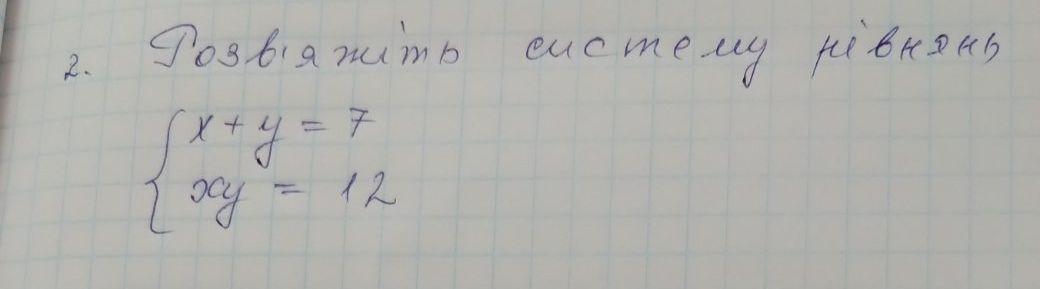 2. Розв'яжіть систему рівнянь
{ x + y = 7
xy = 12